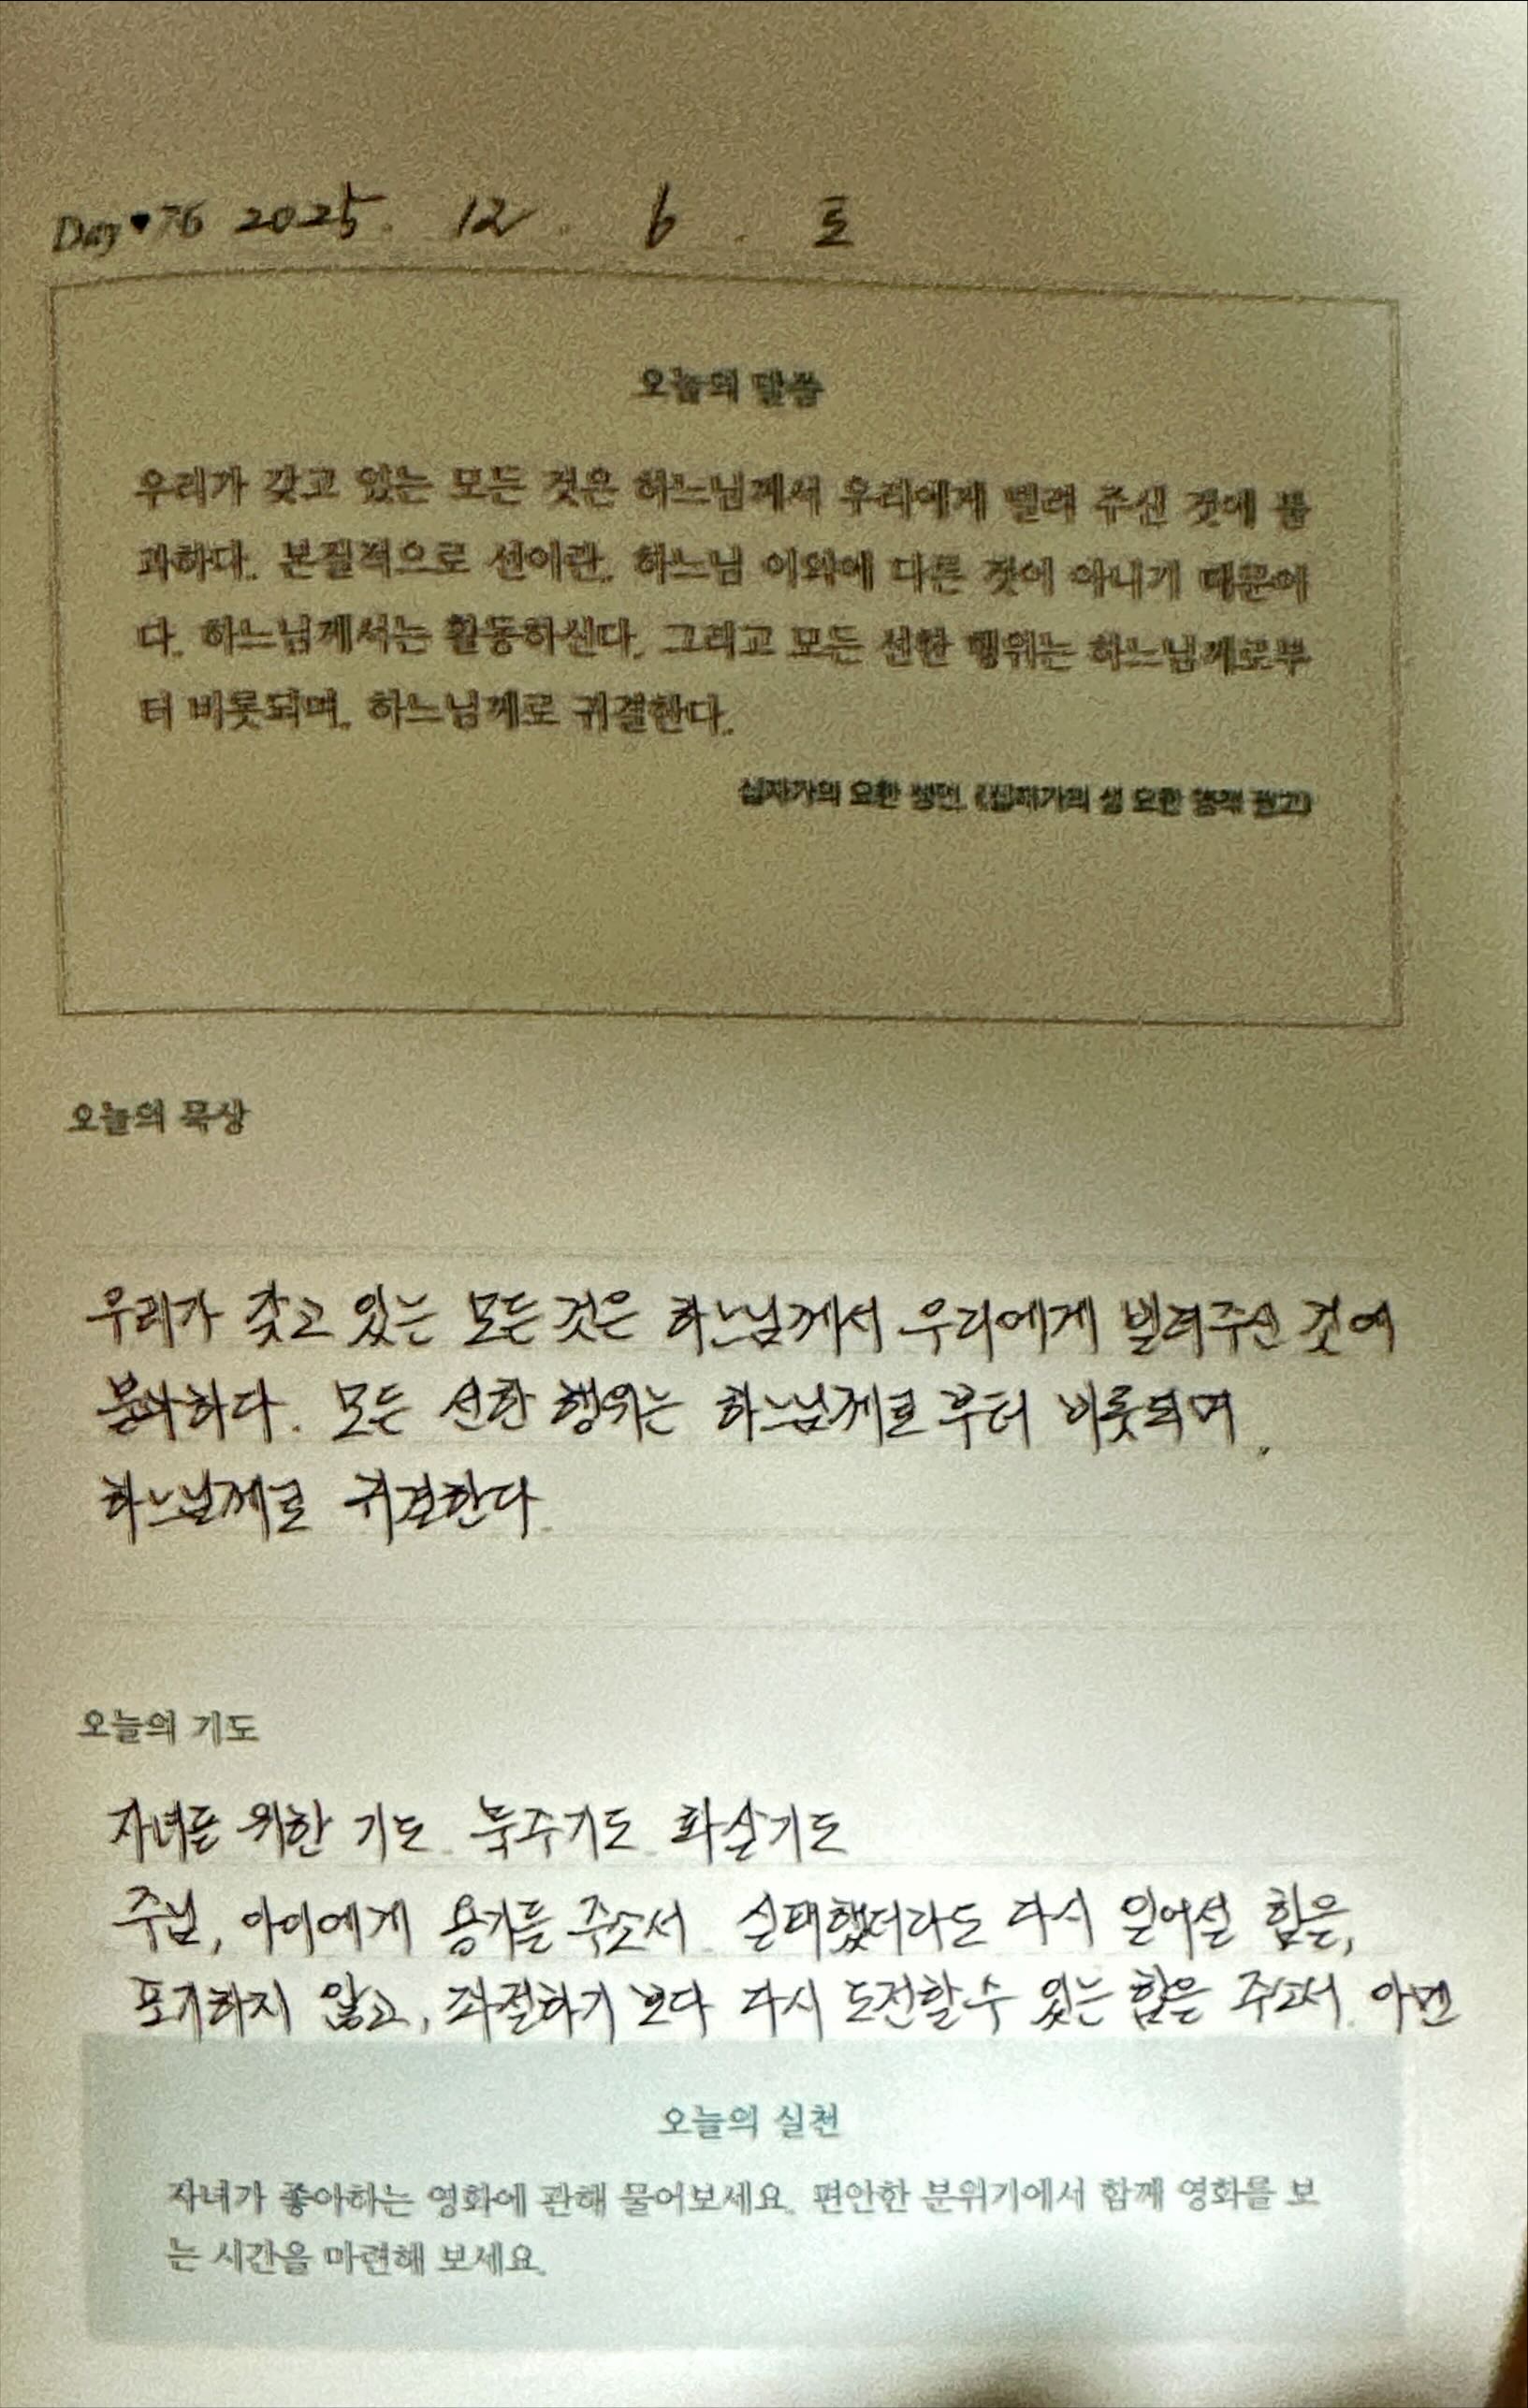 Day♥76 2025. 12. 6. 토
오늘의 말씀
우리가 갖고 있는 모든 것은 하느님께서 우리에게 빌려 주신 것에 불
과하다. 본질적으로 선이란, 하느님 이외에 다른 것이 아니기 때문이
다. 하느님께서는 활동하신다. 그리고 모든 선한 행위는 하느님께로부
터 비롯되며, 하느님께로 귀결한다.
십자가의 요한 성인, 《십자가의 성 요한 영적 권고》
오늘의 묵상
우리가 갖고 있는 모든 것은 하느님께서 우리에게 빌려주신 것에
불과하다. 모든 선한 행위는 하느님께로부터 비롯되며,
하느님께로 귀결한다.
오늘의 기도
자녀를 위한 기도. 묵주기도. 화살기도
주님, 아이에게 용기를 주소서. 실패했더라도 다시 일어설 힘을,
포기하지 않고, 좌절하기 보다 다시 도전할 수 있는 힘을 주소서. 아멘
오늘의 실천
자녀가 좋아하는 영화에 관해 물어보세요. 편안한 분위기에서 함께 영화를 보
는 시간을 마련해 보세요.